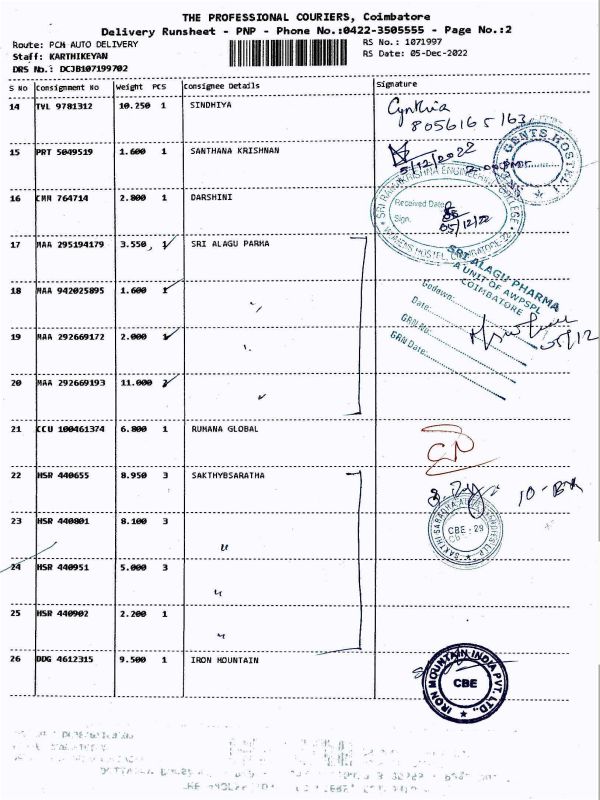 THE PROFESSIONAL COURIERS, Coimbatore
Delivery Runsheet - PNP - Phone No.:0422-3505555 - Page No.:2
Route: PCM AUTO DELIVERY
RS No.: 1071997
Staff: KARTHIKEYAN
RS Date: 05-Dec-2022
DRS No.: DCJB107199702
S No Consignment No Weight PCS Consignee Details Signature
14 TVL 9781312 10.250 1 SINDHIYA
Cynthia
8056165163
15 PRT 5049519 1.600 1 SANTHANA KRISHNAN
5/12/2022
GENTS HOSTEL
16 CMM 764714 2.800 1 DARSHINI
SRI RAMAKRISHNA ENGINEERING COLLEGE
Received Date
Sign.
05/12/22
WOMENS HOSTEL, COIMBATORE-22
17 MAA 295194179 3.550 1 SRI ALAGU PARMA
SRI ALAGU PHARMA
A UNIT OF AWPSPL
COIMBATORE
18 MAA 942025895 1.600 1
Godown:
Date:
GRN No:
GRN Date:
19 MAA 292669172 2.000 1
05/12
20 MAA 292669193 11.000 2
21 CCU 100461374 6.800 1 RUMANA GLOBAL
22 HSR 440655 8.950 3 SAKTHYBSARATHA
23 HSR 440801 8.100 3
CBE - 29
24 HSR 440951 5.000 3
25 HSR 440902 2.200 1
26 DDG 4612315 9.500 1 IRON MOUNTAIN
IRON MOUNTAIN INDIA PVT. LTD.,
CBE